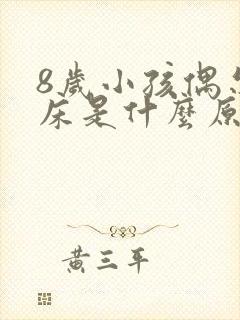 8歲小孩偶
床是什麼原
黃三平